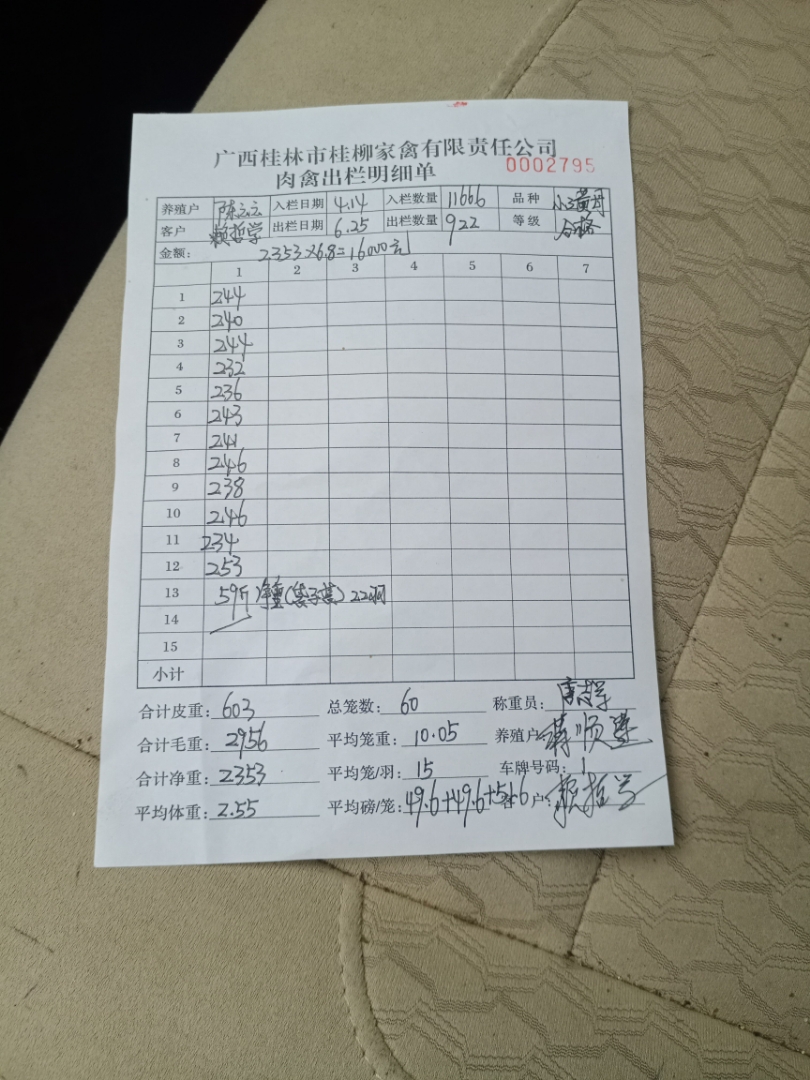 广西桂林市桂柳家禽有限责任公司
0002795
肉禽出栏明细单
养殖户 陈云云 入栏日期 4.14 入栏数量 11666 品种
客户 赖哲学 出栏日期 6.25 出栏数量 922 等级 合格
金额: 2353×6.8=16000元
1 2 3 4 5 6 7
1 244
2 240
3 244
4 232
5 236
6 243
7 241
8 246
9 238
10 246
11 234
12 253
13 59斤 净重
14
15
小计
合计皮重: 603 总笼数: 60 称重员:
合计毛重: 2956 平均笼重: 10.05 养殖户
合计净重: 2353 平均笼/羽: 15 车牌号码:
平均体重: 2.55 平均磅/笼: 49.6+49.6+51.6 户: